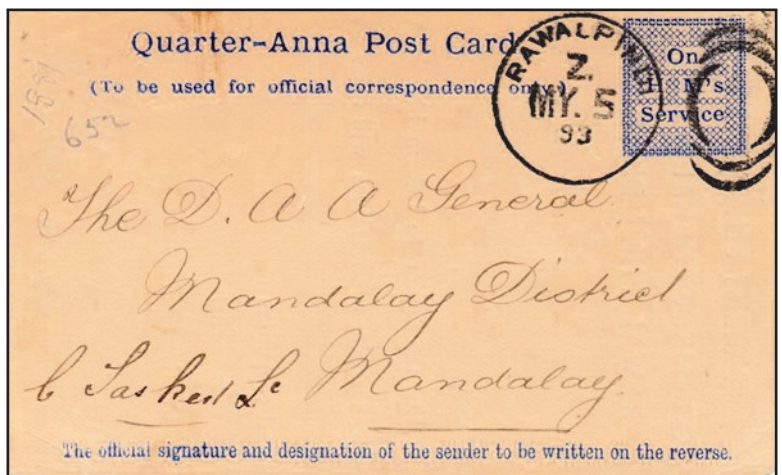 Quarter-Anna Post Card
(To be used for official correspondence
RAWALPINDI
Z.
MY. 5
93
On
H M's
Service
1891
652
The D. A A General
Mandalay District
Mandalay
The official signature and designation of the sender to be written on the reverse.